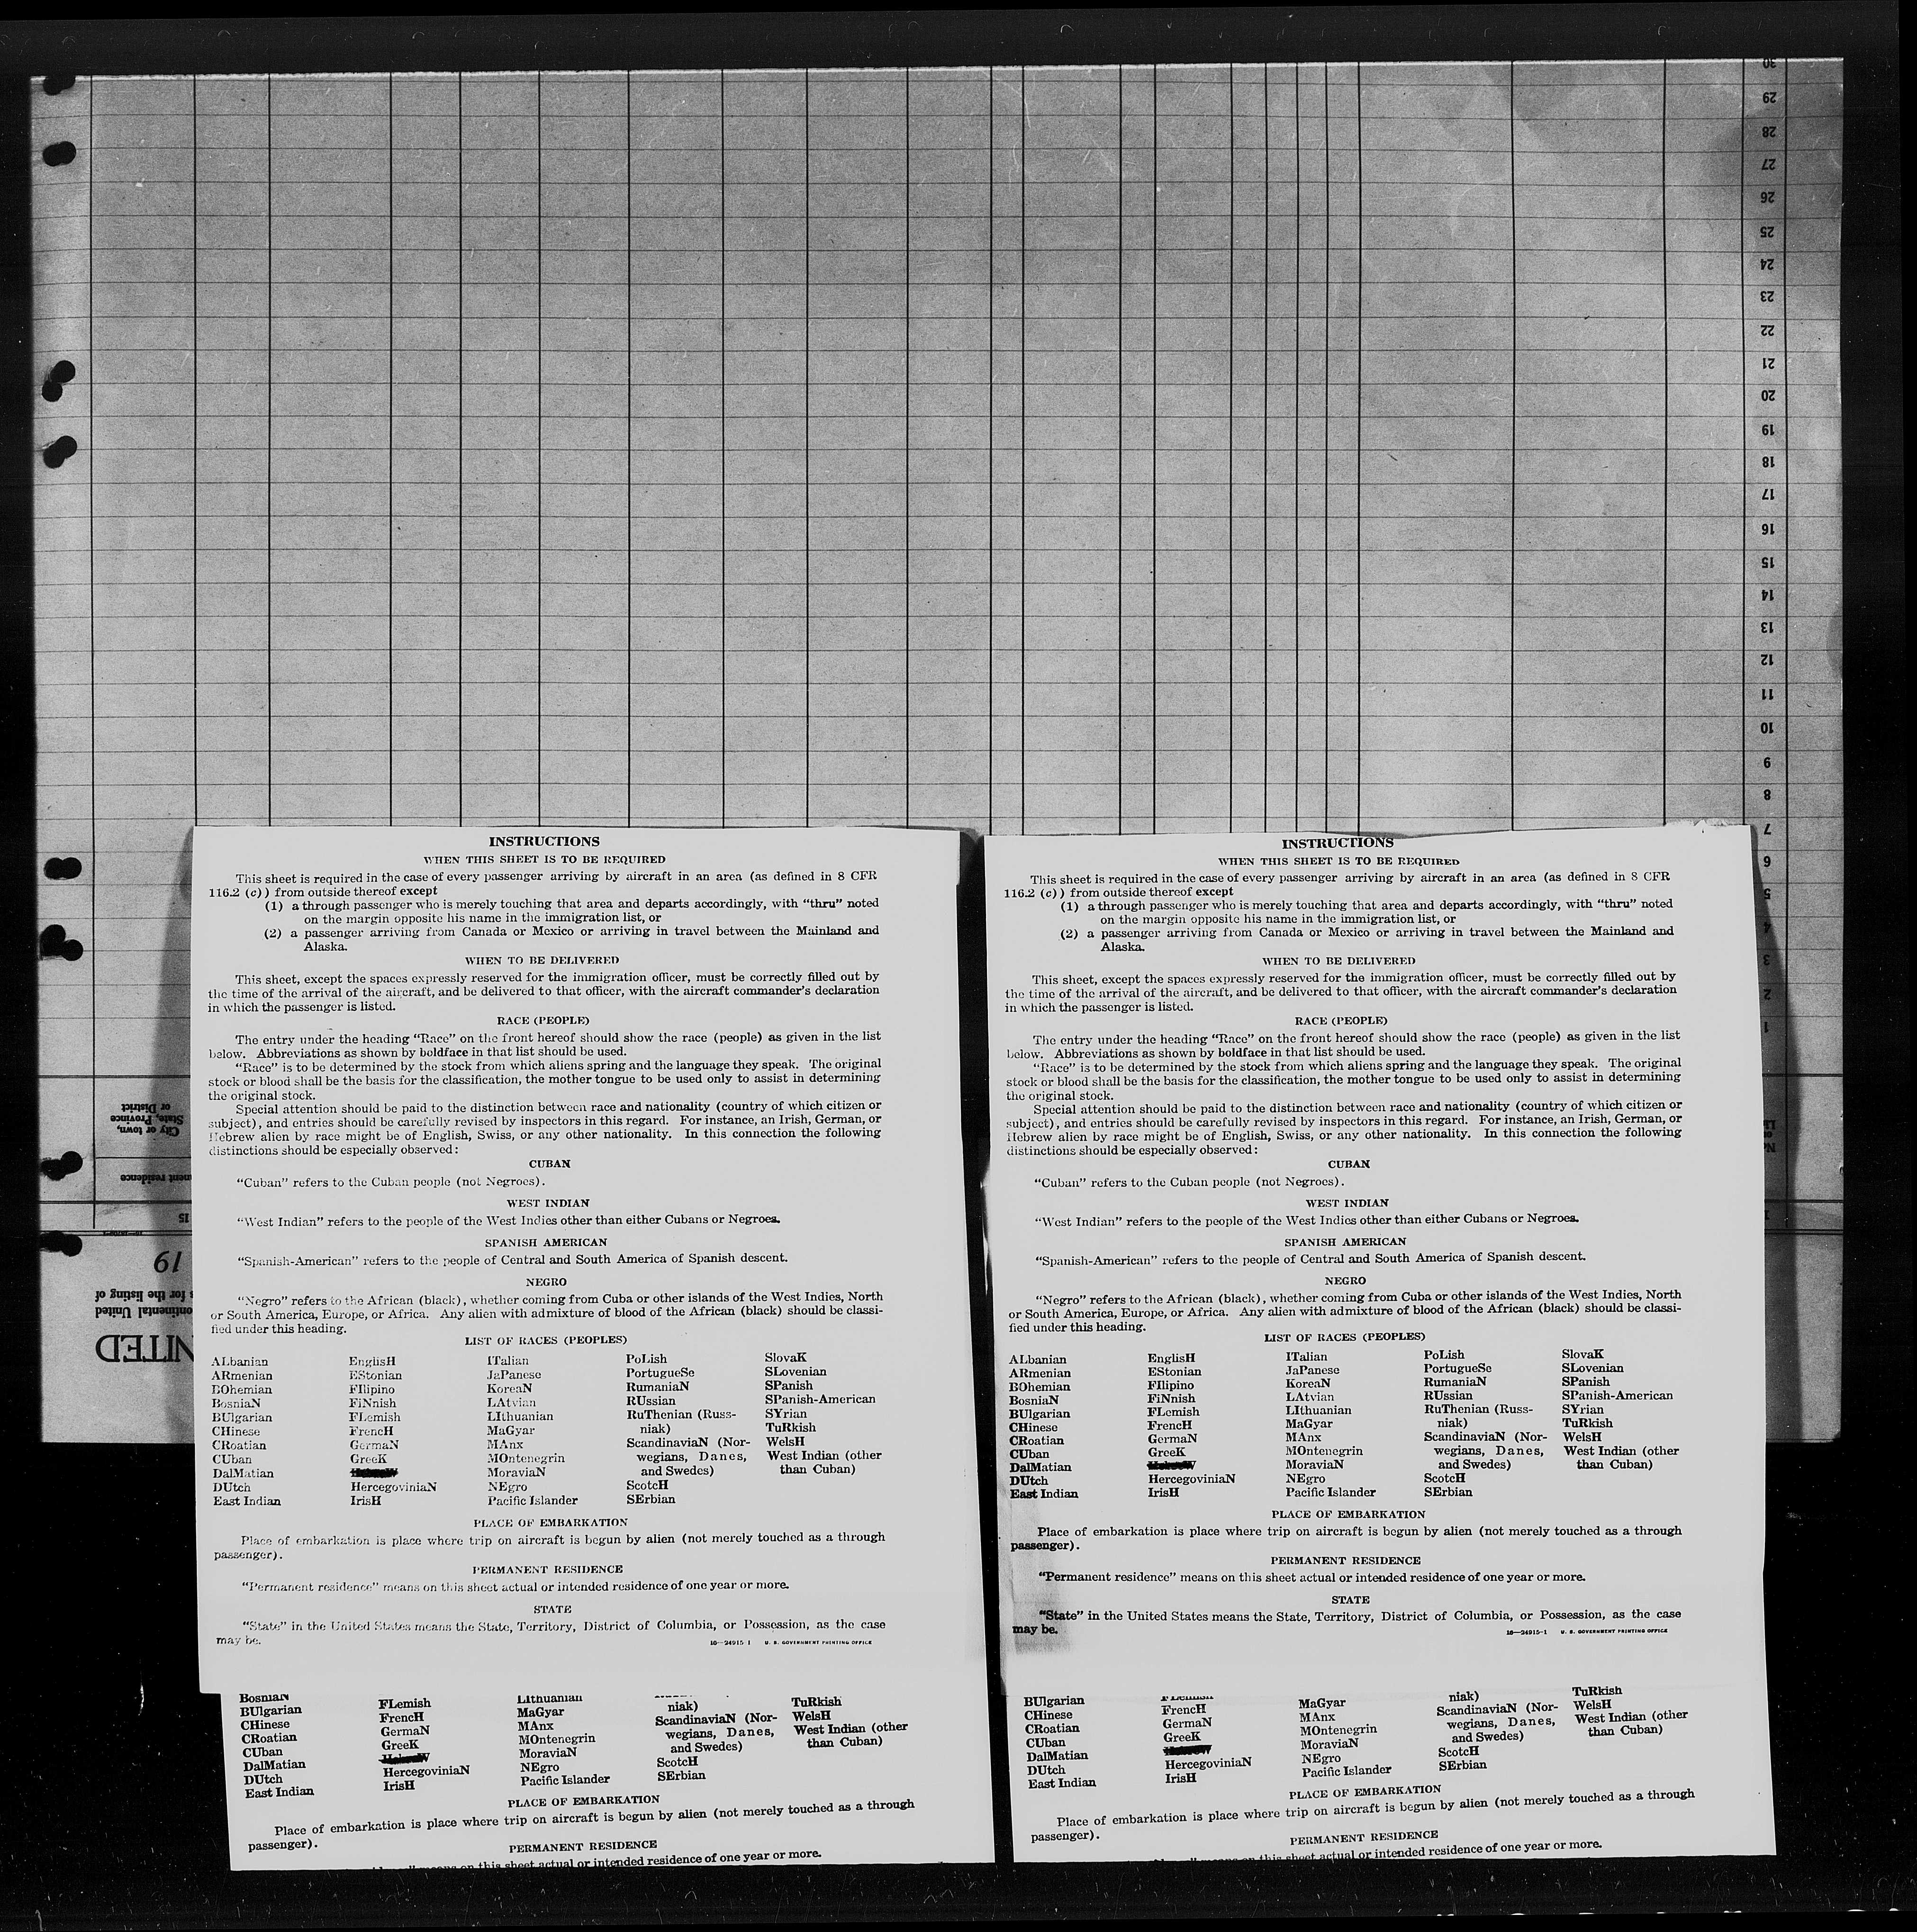 30
29
28
27
26
25
24
23
22
21
20
19
18
17
16
15
14
13
12
11
10
9
8
7
6
5
4
3
2
1
City or town,
State, Province
or District
15
19
for the listing of
INSTRUCTIONS
WHEN THIS SHEET IS TO BE REQUIRED
This sheet is required in the case of every passenger arriving by aircraft in an area (as defined in 8 CFR
116.2 (c)) from outside thereof except
(1) a through passenger who is merely touching that area and departs accordingly, with “thru” noted
on the margin opposite his name in the immigration list, or
(2) a passenger arriving from Canada or Mexico or arriving in travel between the Mainland and
Alaska.
WHEN TO BE DELIVERED
This sheet, except the spaces expressly reserved for the immigration officer, must be correctly filled out by
the time of the arrival of the aircraft, and be delivered to that officer, with the aircraft commander’s declaration
in which the passenger is listed.
RACE (PEOPLE)
The entry under the heading “Race” on the front hereof should show the race (people) as given in the list
below. Abbreviations as shown by boldface in that list should be used.
“Race” is to be determined by the stock from which aliens spring and the language they speak. The original
stock or blood shall be the basis for the classification, the mother tongue to be used only to assist in determining
the original stock.
Special attention should be paid to the distinction between race and nationality (country of which citizen or
subject), and entries should be carefully revised by inspectors in this regard. For instance, an Irish, German, or
Hebrew alien by race might be of English, Swiss, or any other nationality. In this connection the following
distinctions should be especially observed:
CUBAN
“Cuban” refers to the Cuban people (not Negroes).
WEST INDIAN
“West Indian” refers to the people of the West Indies other than either Cubans or Negroes.
SPANISH AMERICAN
“Spanish-American” refers to the people of Central and South America of Spanish descent.
NEGRO
“Negro” refers to the African (black), whether coming from Cuba or other islands of the West Indies, North
or South America, Europe, or Africa. Any alien with admixture of blood of the African (black) should be classi-
fied under this heading.
LIST OF RACES (PEOPLES)
ALbanian
ARmenian
BOhemian
BosniaN
BUlgarian
CHinese
CRoatian
CUban
DalMatian
DUtch
East Indian
EnglisH
EStonian
FIlipino
FiNnish
FLemish
FrencH
GermaN
GreeK
HercegoviniaN
IrisH
ITalian
JaPanese
KoreaN
LAtvian
LIthuanian
MaGyar
MAnx
MOntenegrin
MoraviaN
NEgro
Pacific Islander
PoLish
PortugueSe
RumaniaN
RUssian
RuThenian (Russ-
niak)
ScandinaviaN (Nor-
wegians, Danes,
and Swedes)
ScotcH
SErbian
SlovaK
SLovenian
SPanish
SPanish-American
SYrian
TuRkish
WelsH
West Indian (other
than Cuban)
PLACE OF EMBARKATION
Place of embarkation is place where trip on aircraft is begun by alien (not merely touched as a through
passenger).
PERMANENT RESIDENCE
“Permanent residence” means on this sheet actual or intended residence of one year or more.
STATE
“State” in the United States means the State, Territory, District of Columbia, or Possession, as the case
may be.
16—24915-1 U. S. GOVERNMENT PRINTING OFFICE
BosniaN
BUlgarian
CHinese
CRoatian
CUban
DalMatian
DUtch
East Indian
FLemish
FrencH
GermaN
GreeK
HercegoviniaN
IrisH
LIthuanian
MaGyar
MAnx
MOntenegrin
MoraviaN
NEgro
Pacific Islander
niak)
ScandinaviaN (Nor-
wegians, Danes,
and Swedes)
ScotcH
SErbian
TuRkish
WelsH
West Indian (other
than Cuban)
PLACE OF EMBARKATION
Place of embarkation is place where trip on aircraft is begun by alien (not merely touched as a through
passenger).
PERMANENT RESIDENCE
on this sheet actual or intended residence of one year or more.
INSTRUCTIONS
WHEN THIS SHEET IS TO BE REQUIRED
This sheet is required in the case of every passenger arriving by aircraft in an area (as defined in 8 CFR
116.2 (c)) from outside thereof except
(1) a through passenger who is merely touching that area and departs accordingly, with “thru” noted
on the margin opposite his name in the immigration list, or
(2) a passenger arriving from Canada or Mexico or arriving in travel between the Mainland and
Alaska.
WHEN TO BE DELIVERED
This sheet, except the spaces expressly reserved for the immigration officer, must be correctly filled out by
the time of the arrival of the aircraft, and be delivered to that officer, with the aircraft commander’s declaration
in which the passenger is listed.
RACE (PEOPLE)
The entry under the heading “Race” on the front hereof should show the race (people) as given in the list
below. Abbreviations as shown by boldface in that list should be used.
“Race” is to be determined by the stock from which aliens spring and the language they speak. The original
stock or blood shall be the basis for the classification, the mother tongue to be used only to assist in determining
the original stock.
Special attention should be paid to the distinction between race and nationality (country of which citizen or
subject), and entries should be carefully revised by inspectors in this regard. For instance, an Irish, German, or
Hebrew alien by race might be of English, Swiss, or any other nationality. In this connection the following
distinctions should be especially observed:
CUBAN
“Cuban” refers to the Cuban people (not Negroes).
WEST INDIAN
“West Indian” refers to the people of the West Indies other than either Cubans or Negroes.
SPANISH AMERICAN
“Spanish-American” refers to the people of Central and South America of Spanish descent.
NEGRO
“Negro” refers to the African (black), whether coming from Cuba or other islands of the West Indies, North
or South America, Europe, or Africa. Any alien with admixture of blood of the African (black) should be classi-
fied under this heading.
LIST OF RACES (PEOPLES)
ALbanian
ARmenian
BOhemian
BosniaN
BUlgarian
CHinese
CRoatian
CUban
DalMatian
DUtch
East Indian
EnglisH
EStonian
FIlipino
FiNnish
FLemish
FrencH
GermaN
GreeK
HercegoviniaN
IrisH
ITalian
JaPanese
KoreaN
LAtvian
LIthuanian
MaGyar
MAnx
MOntenegrin
MoraviaN
NEgro
Pacific Islander
PoLish
PortugueSe
RumaniaN
RUssian
RuThenian (Russ-
niak)
ScandinaviaN (Nor-
wegians, Danes,
and Swedes)
ScotcH
SErbian
SlovaK
SLovenian
SPanish
SPanish-American
SYrian
TuRkish
WelsH
West Indian (other
than Cuban)
PLACE OF EMBARKATION
Place of embarkation is place where trip on aircraft is begun by alien (not merely touched as a through
passenger).
PERMANENT RESIDENCE
“Permanent residence” means on this sheet actual or intended residence of one year or more.
STATE
“State” in the United States means the State, Territory, District of Columbia, or Possession, as the case
may be.
16—24915-1 U. S. GOVERNMENT PRINTING OFFICE
BUlgarian
CHinese
CRoatian
CUban
DalMatian
DUtch
East Indian
FrencH
GermaN
GreeK
HercegoviniaN
IrisH
MaGyar
MAnx
MOntenegrin
MoraviaN
NEgro
Pacific Islander
niak)
ScandinaviaN (Nor-
wegians, Danes,
and Swedes)
ScotcH
SErbian
TuRkish
WelsH
West Indian (other
than Cuban)
PLACE OF EMBARKATION
Place of embarkation is place where trip on aircraft is begun by alien (not merely touched as a through
passenger).
PERMANENT RESIDENCE
on this sheet actual or intended residence of one year or more.